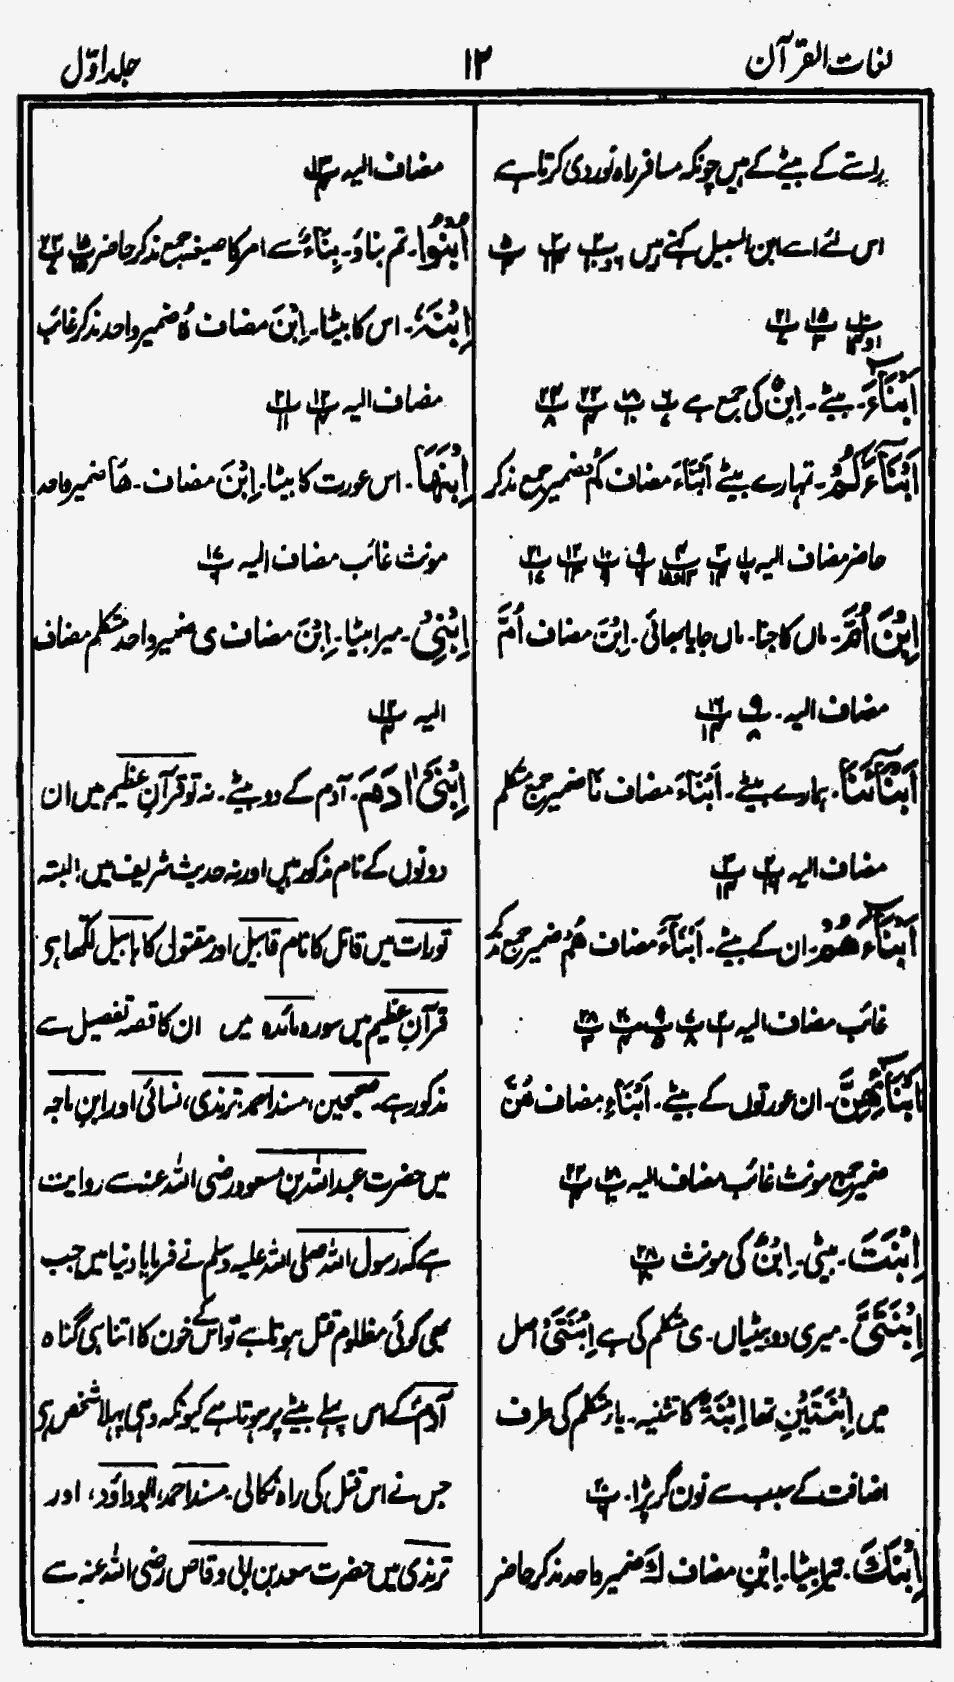 لغات القرآن
۱۲
جلد اوّل
راستے کے بیٹے کے ہیں چونکہ مسافر راہ نوردی کرتا ہے
اس لئے اسے ابن السبیل کہتے ہیں
اَبْنَآءَ۔ بیٹے۔ اِبْنٌ کی جمع ہے
اَبْنَآءَكُمْ۔ تمہارے بیٹے اَبْنَآءَ مضاف كُمْ ضمیر جمع مذکر
حاضر مضاف الیہ
اِبْنَ اُمَّ۔ ماں کا جنا۔ ماں جایا بھائی۔ اِبْنَ مضاف اُمَّ
مضاف الیہ۔
اَبْنَآءَنَا۔ ہمارے بیٹے۔ اَبْنَآءَ مضاف نَا ضمیر جمع متکلم
مضاف الیہ
اَبْنَآءَهُمْ۔ ان کے بیٹے۔ اَبْنَآءَ مضاف هُمْ ضمیر جمع مذکر
غائب مضاف الیہ
اَبْنَآئِهِنَّ۔ ان عورتوں کے بیٹے۔ اَبْنَآءِ مضاف هُنَّ
ضمیر جمع مونث غائب مضاف الیہ
اِبْنَتَ۔ بیٹی۔ اِبْنٌ کی مونث
اِبْنَتَیَّ۔ میری دو بیٹیاں۔ ی متکلم کی ہے اِبْنَتَیَّ اصل
میں اِبْنَتَیْنِ تھا اِبْنَةٌ کا تثنیہ۔ یاء متکلم کی طرف
اضافت کے سبب سے نون گر پڑا۔
اِبْنَكَ۔ تیرا بیٹا۔ اِبْنِ مضاف كَ ضمیر واحد مذکر حاضر
مضاف الیہ
اُبْنُوْا۔ تم بناؤ۔ بِنَآءٌ سے امر کا صیغہ جمع مذکر حاضر
اِبْنَهٗ۔ اس کا بیٹا۔ اِبْنَ مضاف هٗ ضمیر واحد مذکر غائب
مضاف الیہ
اِبْنَهَا۔ اس عورت کا بیٹا۔ اِبْنَ مضاف۔ هَا ضمیر واحد
مونث غائب مضاف الیہ
اِبْنِیْ۔ میرا بیٹا۔ اِبْنَ مضاف ی ضمیر واحد متکلم مضاف
الیہ
اِبْنَیْ اٰدَمَ۔ آدم کے دو بیٹے۔ نہ تو قرآن عظیم میں ان
دونوں کے نام مذکور ہیں اور نہ حدیث شریف میں! البتہ
تورات میں قاتل کا نام قابیل اور مقتول کا ہابیل لکھا ہی
قرآنِ عظیم میں سورہ مائدہ میں ان کا قصہ تفصیل سے
مذکور ہے۔ صحیحین، مسند احمد، ترمذی، نسائی اور ابنِ ماجہ
میں حضرت عبداللہ بن مسعود رضی اللہ عنہ سے روایت
ہے کہ رسول اللہ صلی اللہ علیہ وسلم نے فرمایا دنیا میں جب
بھی کوئی مظلوم قتل ہوتا ہے تو اس کے خون کا اتنا ہی گناہ
آدمؑ کے اس پہلے بیٹے پر ہوتا ہے کیونکہ وہی پہلا شخص ہی
جس نے اس قتل کی راہ نکالی۔ مسند احمد، ابوداؤد، اور
ترمذی میں حضرت سعد بن ابی وقاص رضی اللہ عنہ سے